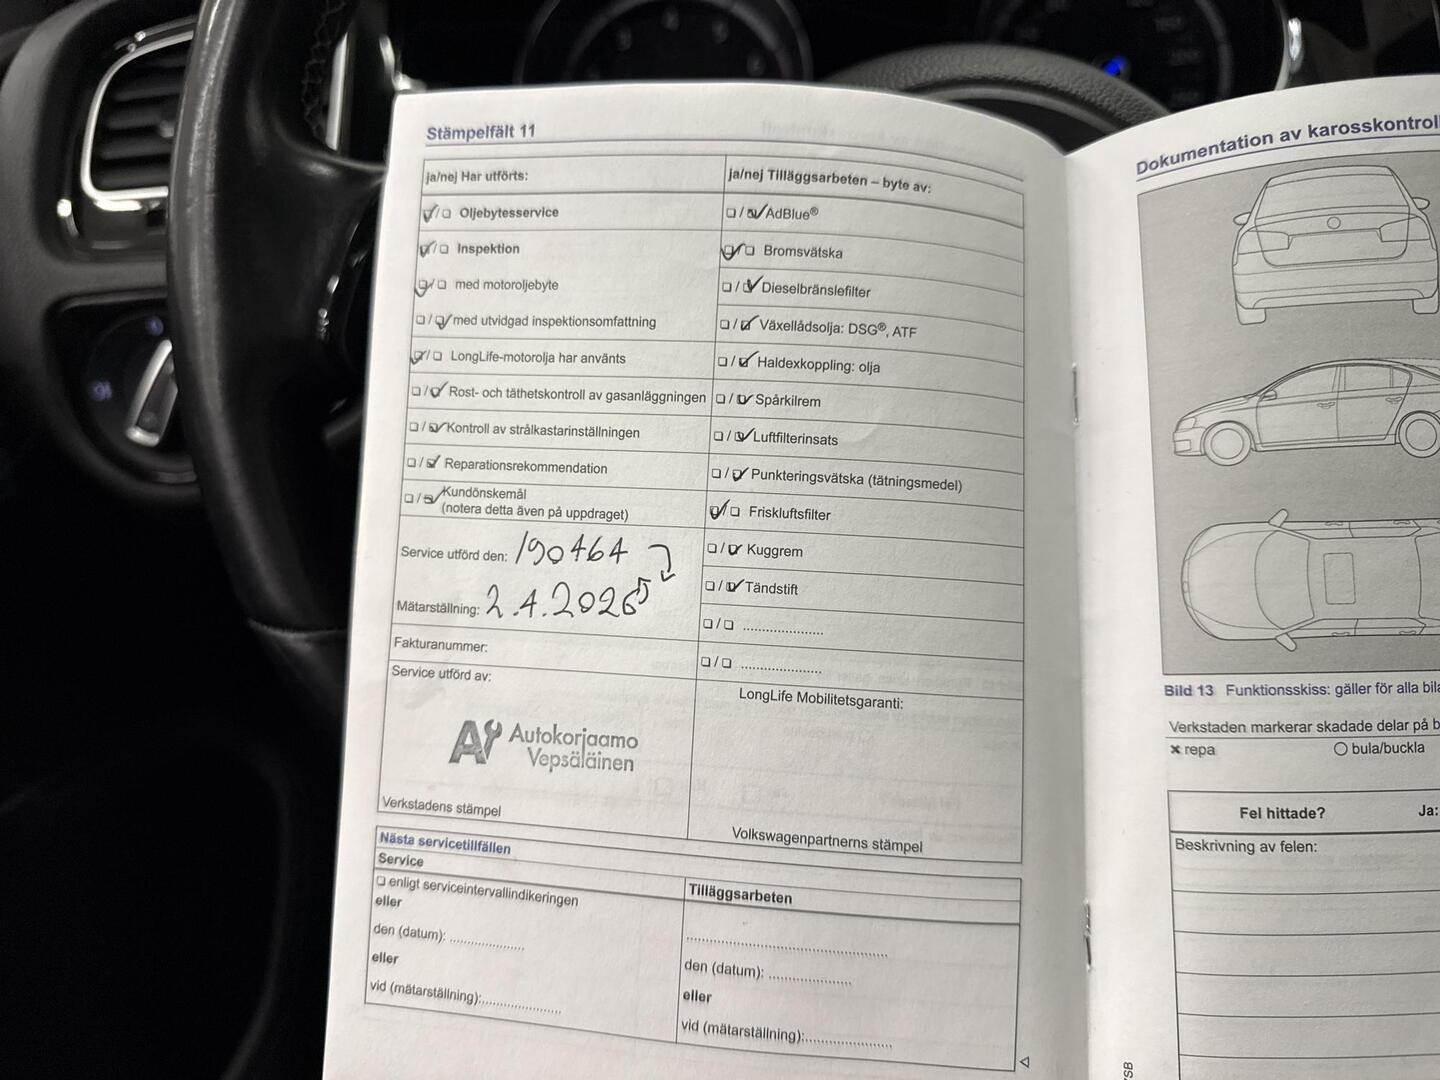 Stämpelfält 11
ja/nej Har utförts:
Oljebytesservice
Inspektion
med motoroljebyte
med utvidgad inspektionsomfattning
LongLife-motorolja har använts
Rost- och täthetskontroll av gasanläggningen
Kontroll av strålkastarinställningen
Reparationsrekommendation
Kundönskemål
(notera detta även på uppdraget)
Service utförd den: 190464
Mätarställning: 2.4.2026
Fakturanummer:
Service utförd av:
Autokorjaamo
Vepsäläinen
Verkstadens stämpel
ja/nej Tilläggsarbeten – byte av:
AdBlue®
Bromsvätska
Dieselbränslefilter
Växellådsolja: DSG®, ATF
Haldexkoppling: olja
Spårkilrem
Luftfilterinsats
Punkteringsvätska (tätningsmedel)
Friskluftsfilter
Kuggrem
Tändstift
LongLife Mobilitetsgaranti:
Volkswagenpartnerns stämpel
Nästa servicetillfällen
Service
enligt serviceintervallindikeringen
eller
den (datum):
eller
vid (mätarställning):
Tilläggsarbeten
den (datum):
eller
vid (mätarställning):
Dokumentation av karosskontroll
Bild 13 Funktionsskiss: gäller för alla
Verkstaden markerar skadade delar på
× repa
bula/buckla
Fel hittade?
Ja:
Beskrivning av felen: